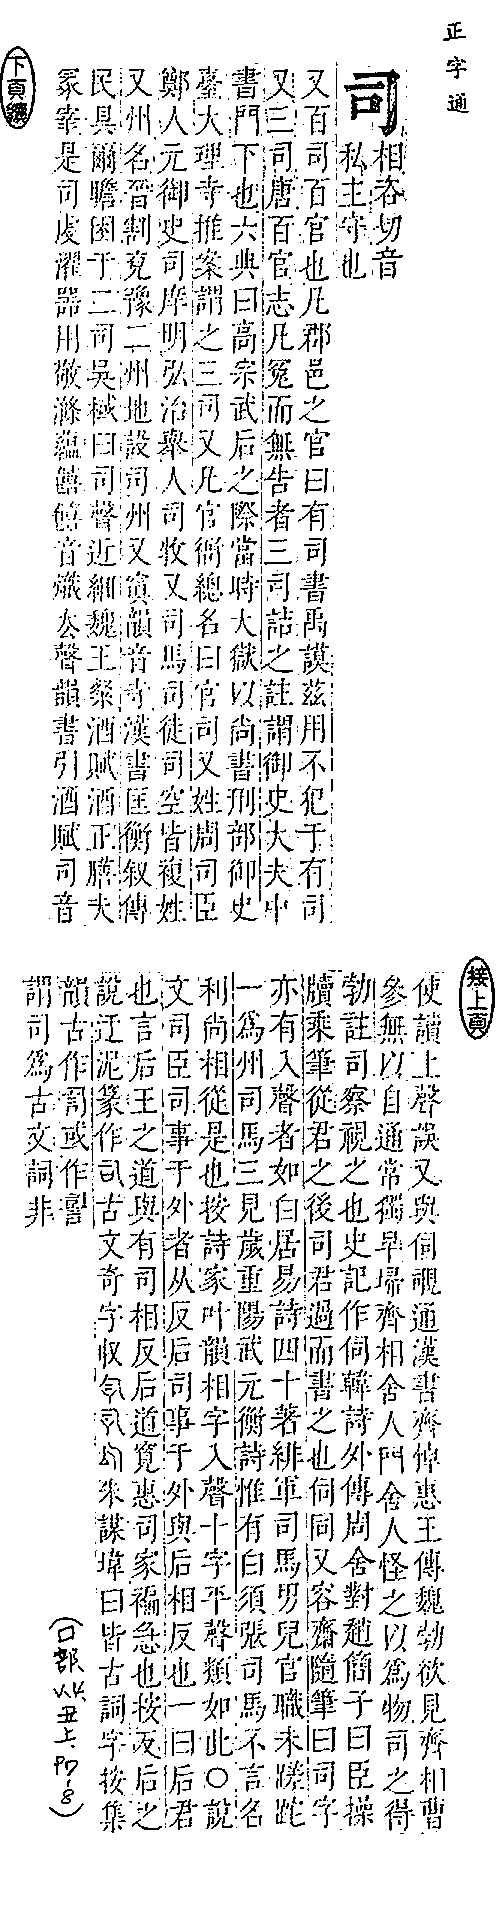 正字通
司
相咨切音
私主守也
又百司百官也凡郡邑之官曰有司書禹謨茲用不犯于有司
又三司唐百官志凡冤而無告者三司詰之註謂御史大夫中
書門下也六典曰高宗武后之際當時大獄以尚書刑部御史
臺大理寺推案謂之三司又凡官衙總名曰官司又姓周司臣
鄭人元御史司庠明弘治舉人司牧又司馬司徒司空皆複姓
又州名晉割兗豫二州地設司州又寘韻音寺漢書匡衡敘傳
民具爾瞻困于二司吳棫曰司聲近細魏王粲酒賦酒正膳夫
冢宰是司虔濯器用敬滌蘊饎饎音熾去聲韻書引酒賦司音
下頁續
接上頁
使讀上聲誤又與伺覗通漢書齊悼惠王傳魏勃欲見齊相曹
參無以自通常獨早埽齊相舍人門舍人怪之以為物司之得
勃註司察視之也史記作伺韓詩外傳周舍對趙簡子曰臣操
牘秉筆從君之後司君過而書之也伺同又容齋隨筆曰司字
亦有入聲者如白居易詩四十著緋軍司馬男兒官職未蹉跎
一為州司馬三見歲重陽武元衡詩惟有白須張司馬不言名
利尚相從是也按詩家叶韻相字入聲十字平聲類如此〇說
文司臣司事于外者从反后司事于外與后相反也一曰后君
也言后王之道與有司相反后道寬惠司家褊急也按反后之
說迂泥篆作司古文奇字收
朱謀㙔曰皆古詞字按集
韻古作
或作
謂司為古文詞非
(口部 丑上 P7-8)